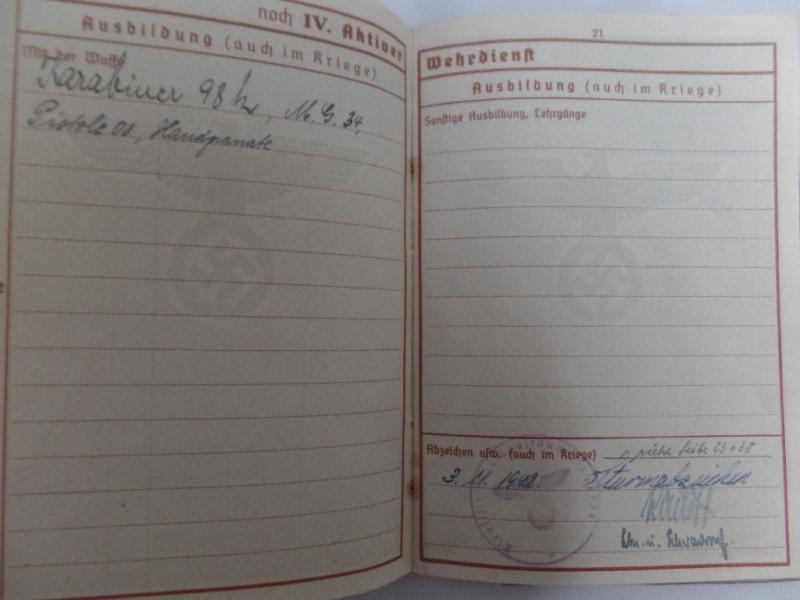 noch IV. Aktiver
Ausbildung (auch im Kriege)
Mit der Waffe
Karabiner 98 k, M. G. 34,
Pistole 08, Handgranate
21
Wehrdienst
Ausbildung (auch im Kriege)
Sonstige Ausbildung, Lehrgänge
Abzeichen usw. (auch im Kriege) siehe Seite 23 + 38
3. 11. 1942. Sturmabzeichen
Ltn. u.